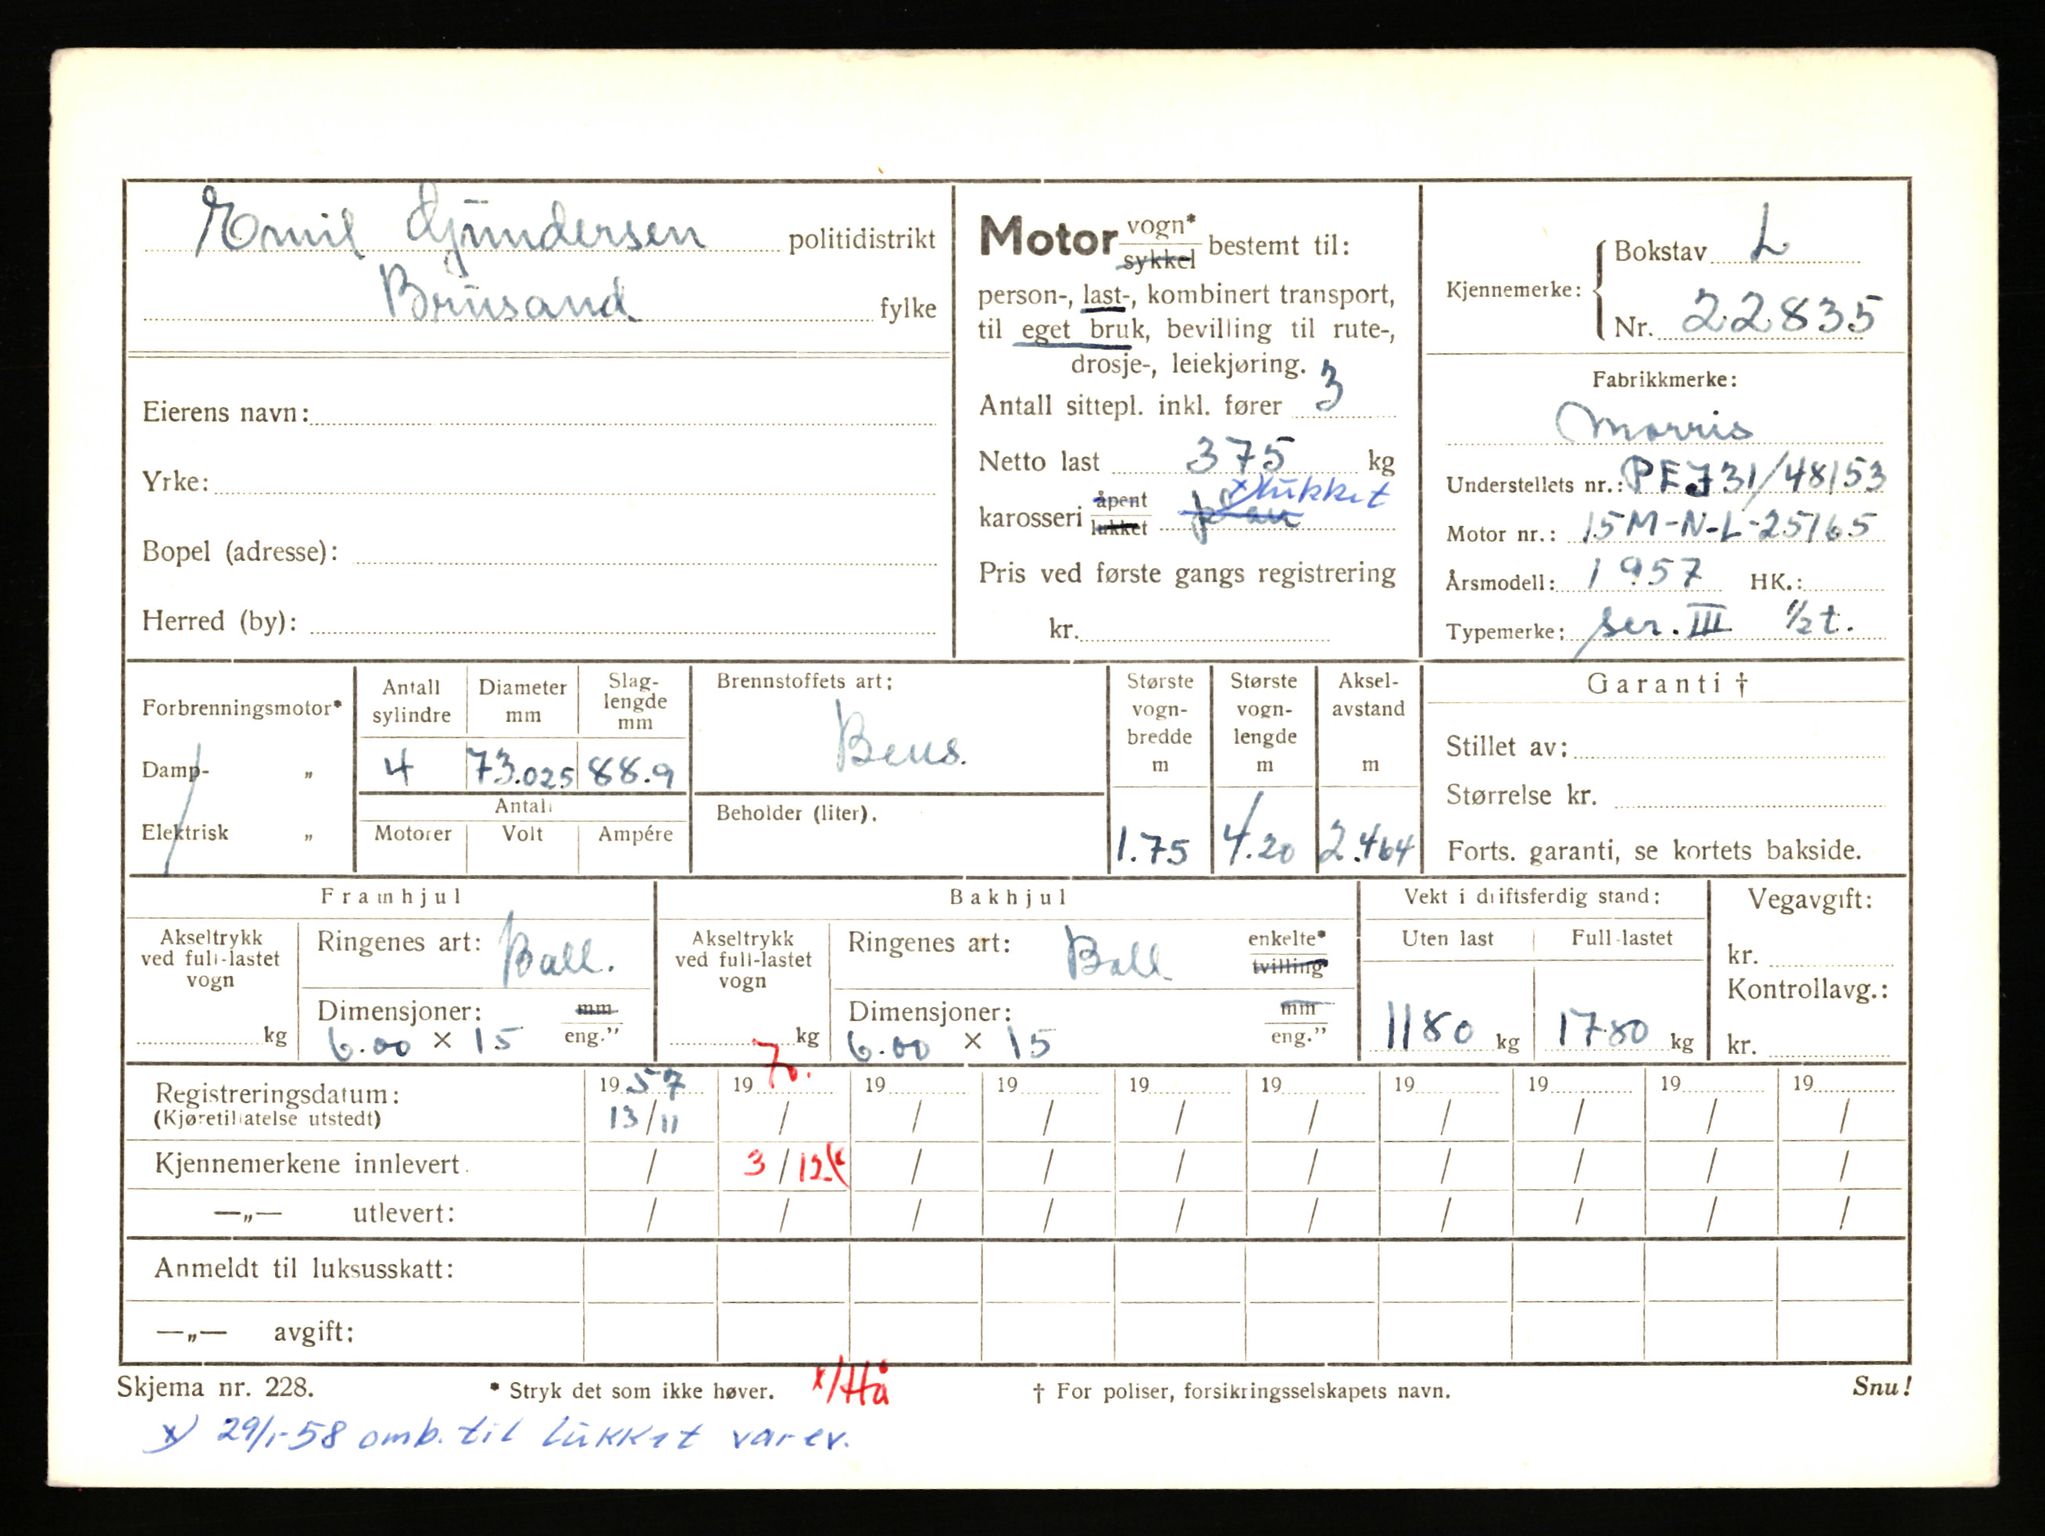 Emil Gjundersen politidistrikt
Brusand fylke
Eierens navn:
Yrke:
Bopel (adresse):
Herred (by):
Motor vogn* sykkel bestemt til:
person-, last-, kombinert transport,
til eget bruk, bevilling til rute-,
drosje-, leiekjøring.
Antall sittepl. inkl. fører 3
Netto last 375 kg
x) lukket
karosseri åpent lukket plan
Pris ved første gangs registrering
kr.
Kjennemerke: Bokstav L
Nr. 22835
Fabrikkmerke:
Morris
Understellets nr.: PEJ31/48153
Motor nr.: 15M-N-L-25165
Årsmodell: 1957 HK.:
Typemerke: ser. III 1/2 t.
Forbrenningsmotor*
Damp- „
Elektrisk „
Antall sylindre
4
Diameter mm
73.025
Slag-lengde mm
88.9
Antall
Motorer Volt Ampére
Brennstoffets art:
Bens.
Beholder (liter).
Største vogn-bredde m
1.75
Største vogn-lengde m
4.20
Aksel-avstand m
2.464
Garanti †
Stillet av:
Størrelse kr.
Forts. garanti, se kortets bakside.
Framhjul
Akseltrykk ved full-lastet vogn
kg
Ringenes art: Ball.
Dimensjoner: mm
6.00 × 15 eng."
Bakhjul
Akseltrykk ved full-lastet vogn
kg
Ringenes art: Ball enkelte* tvilling
Dimensjoner: mm
6.00 × 15 eng."
Vekt i driftsferdig stand:
Uten last Full-lastet
1180 kg 1780 kg
Vegavgift:
kr.
Kontrollavg.:
kr.
Registreringsdatum: 1957 1970. 19 19 19 19 19 19 19 19
(Kjøretillatelse utstedt) 13/11 / / / / / / / / /
Kjennemerkene innlevert. / 3/12 x) / / / / / / / /
—„— utlevert: / / / / / / / / / /
Anmeldt til luksusskatt:
—„— avgift:
Skjema nr. 228. * Stryk det som ikke høver. x/Hå † For poliser, forsikringsselskapets navn. Snu!
x) 29/1-58 omb. til lukket varev.